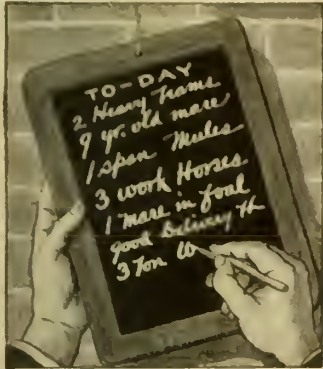 TO-DAY
2 Heavy Teams
9 yr. old mare
1 Span Mules
3 work Horses
1 mare in foal
good Delivery
3 Ton